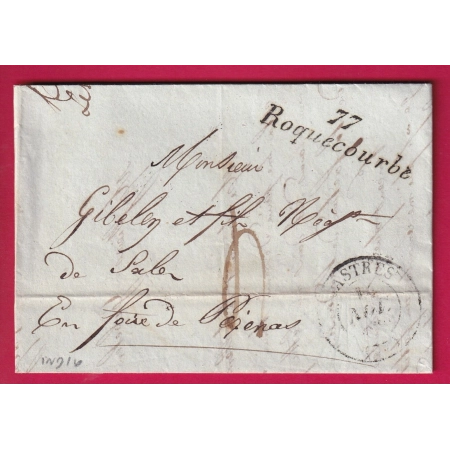 77
Roquecourbe
Monsieur
Gibelin et fils Nég
de Salon
En foire de Pézenas
CASTRES
IND16